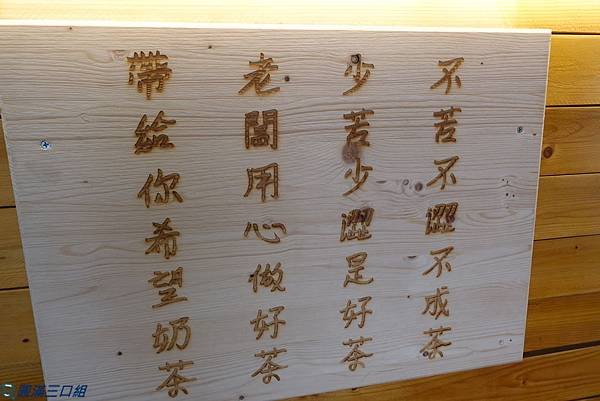 不苦不澀不成茶
少苦少澀足好茶
老闆用心做好茶
帶給你希望奶茶
圓滿三口組